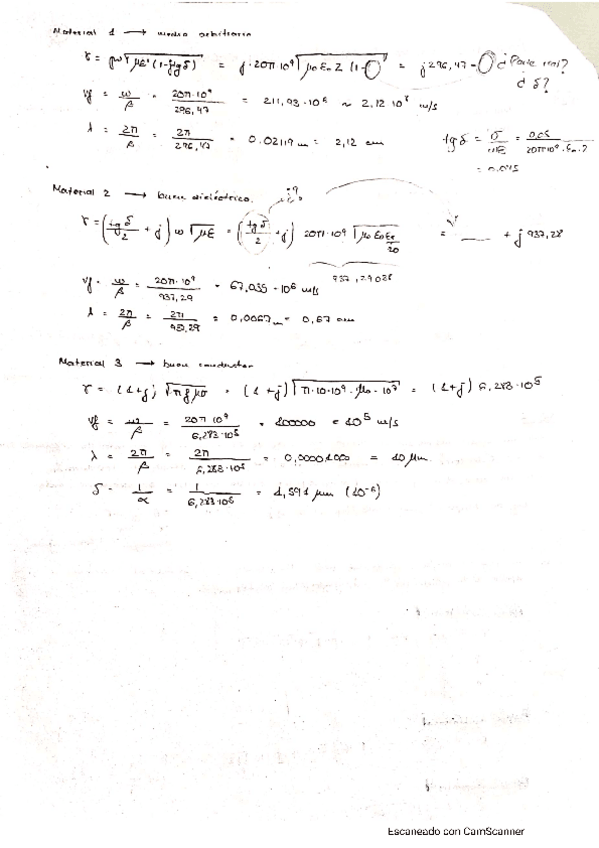 Material 1 → medio arbitrario
γ = jω√(με'(1-jtgδ)) = j·20π·10⁹√(μ₀ε₀2(1- )) = j296,47 - ¿Parte real?
¿δ?
vf = ω/β = 20π·10⁹/296,47 = 211,93·10⁶ ~ 2,12·10⁸ m/s
λ = 2π/β = 2π/296,47 = 0.02119 m = 2,12 cm
tgδ = σ/ωε = 0.05/20π10⁹·ε₀·2
= 0.045
Material 2 → buen dieléctrico
γ = (tgδ/2 + j) ω√με = (tgδ/2 + j) 20π·10⁹ √(μ₀ε₀εr) = ___ + j 937,28
20
937,29028
vf = ω/β = 20π·10⁹/937,29 = 67,035·10⁶ m/s
λ = 2π/β = 2π/937,29 = 0,0067 m = 0,67 cm
Material 3 → buen conductor
γ = (1+j)√(πfμσ) = (1+j)√(π·10·10⁹·μ₀·10⁷) = (1+j) 6,283·10⁵
vf = ω/β = 20π·10⁹/6,283·10⁵ = 100000 = 10⁵ m/s
λ = 2π/β = 2π/6,283·10⁵ = 0,00001000 = 10 μm
δ = 1/α = 1/6,283·10⁵ = 1,591 μm (10⁻⁶)
Escaneado con CamScanner